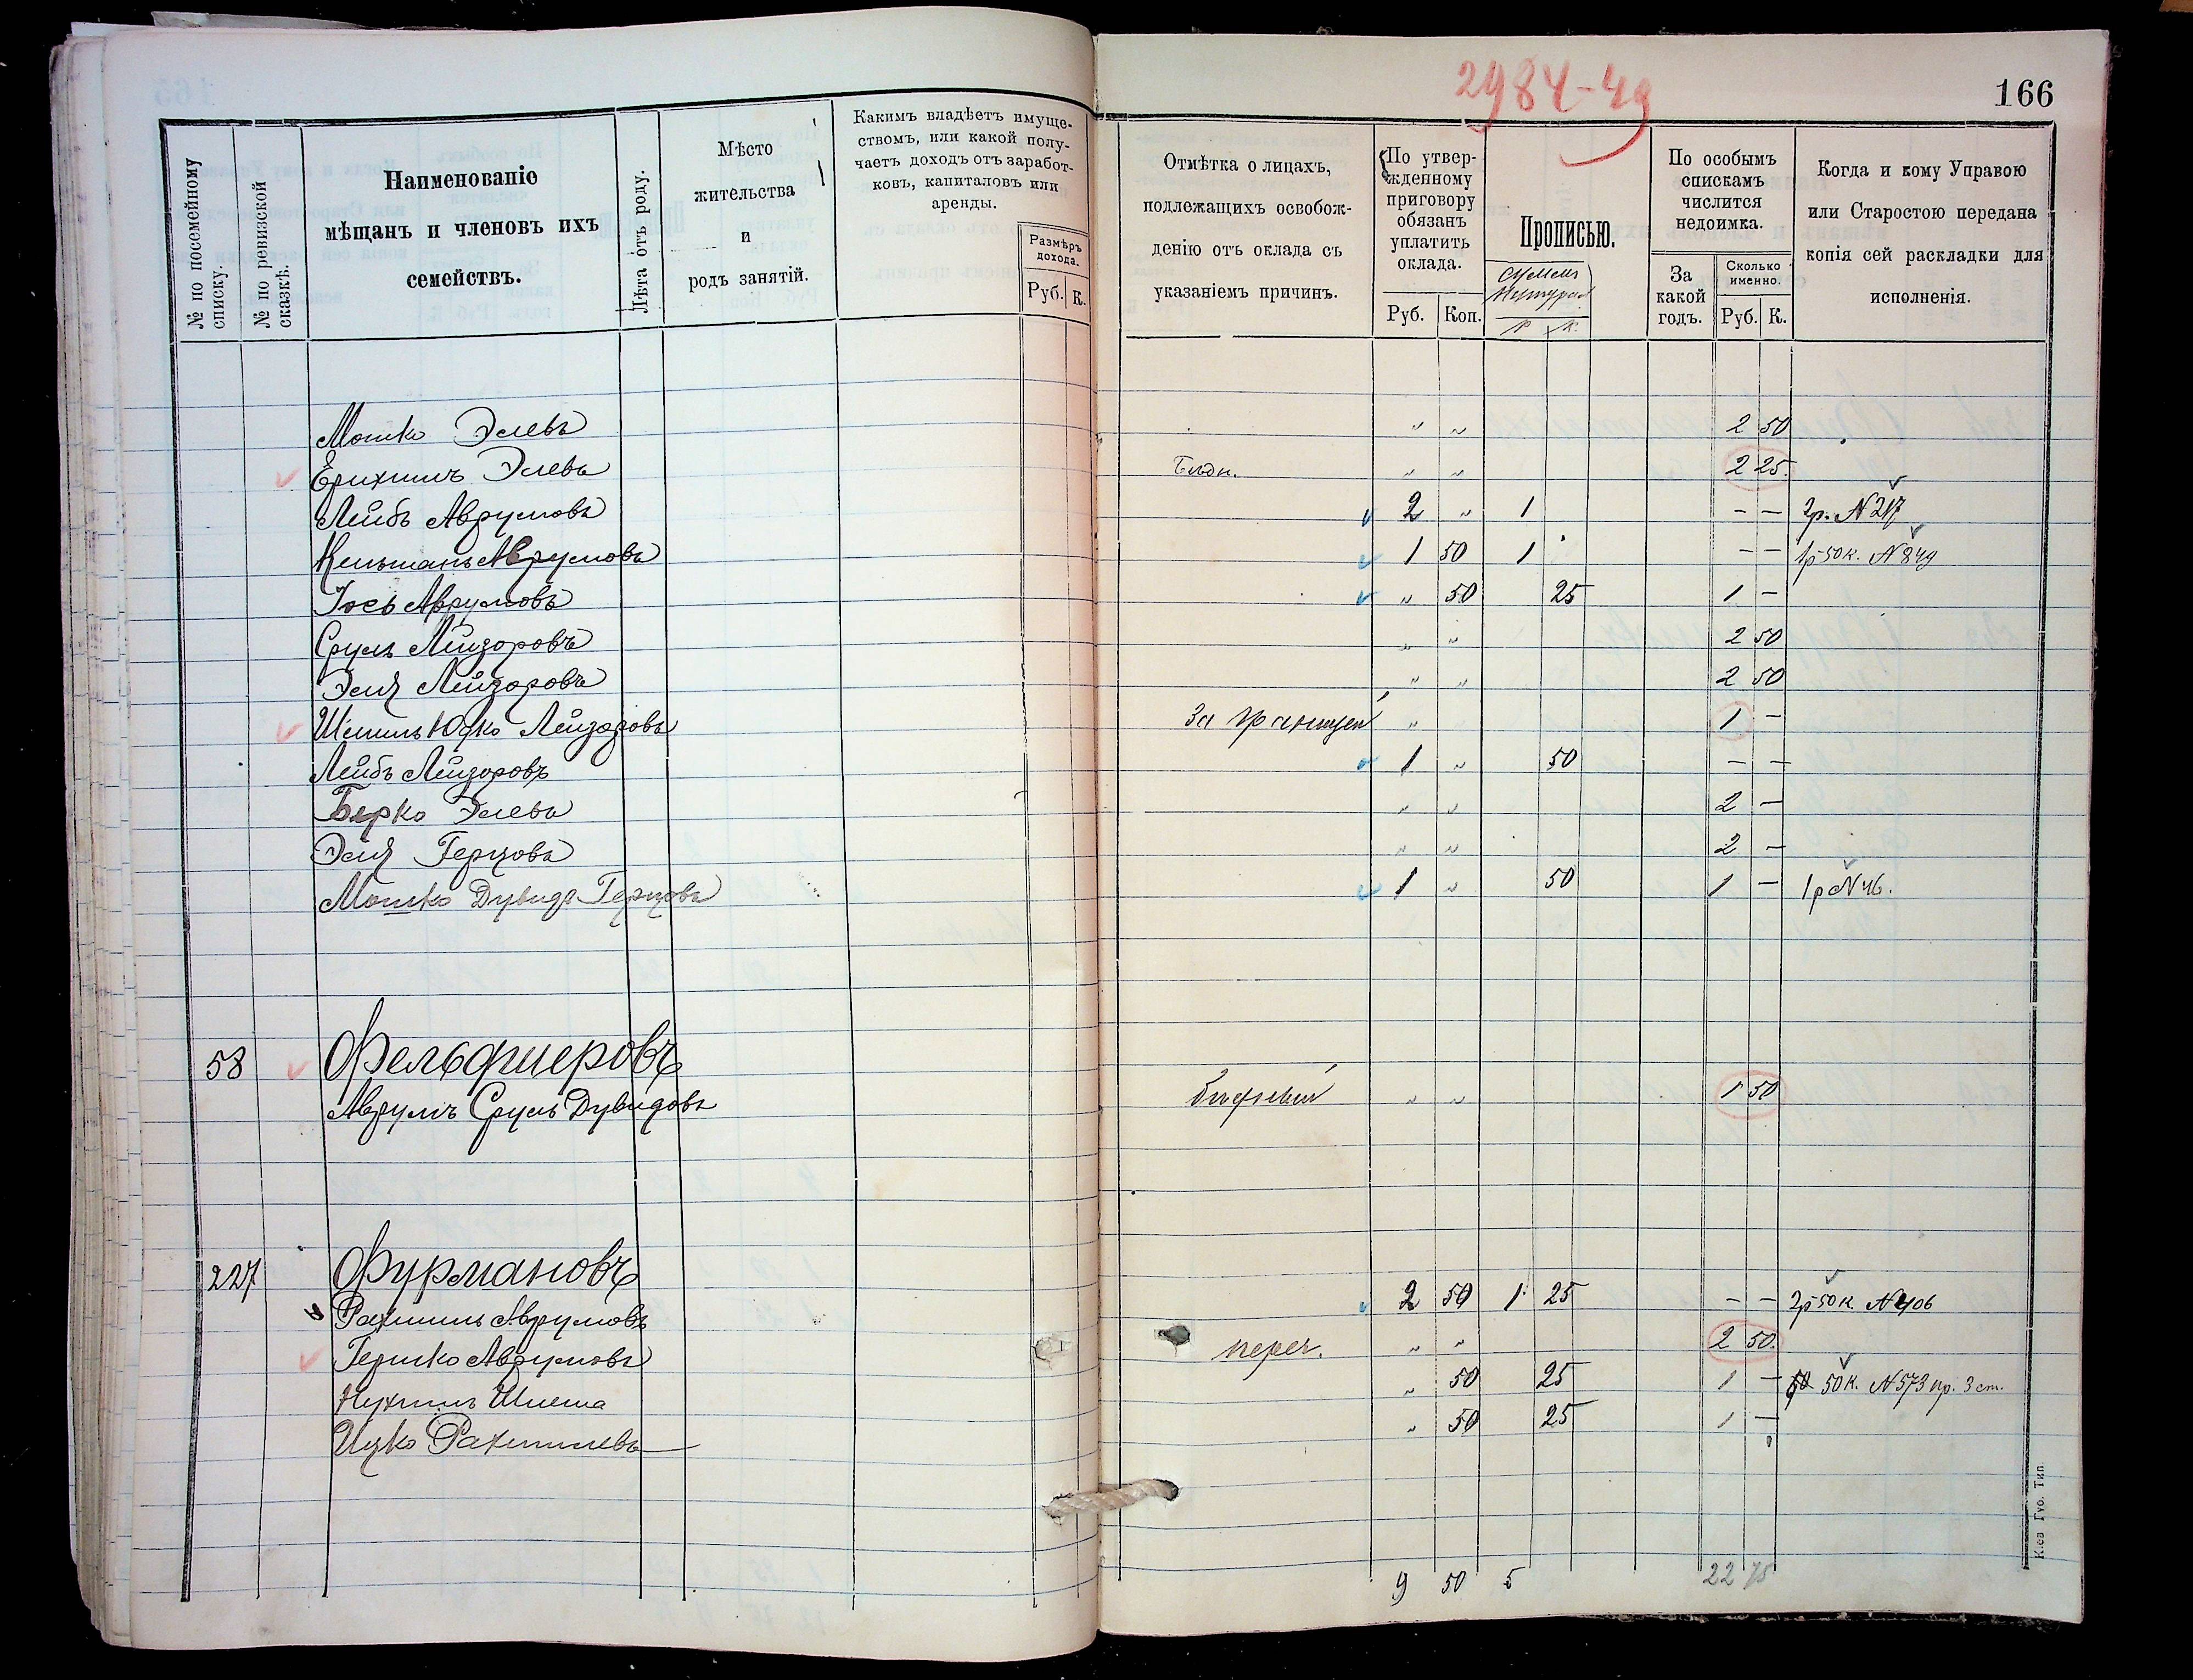 2984-49
166
№ по посемейному списку.
№ по ревизской сказкѣ.
Наименованіе мѣщанъ и членовъ ихъ семействъ.
Лѣта отъ роду.
Мѣсто жительства и родъ занятій.
Какимъ владѣетъ имуществомъ, или какой получаетъ доходъ отъ заработковъ, капиталовъ или аренды.
Размѣръ дохода.
Руб. К.
Отмѣтка о лицахъ, подлежащихъ освобожденію отъ оклада съ указаніемъ причинъ.
По утвержденному приговору обязанъ уплатить оклада.
Руб. Коп.
Прописью.
Р К.
По особымъ спискамъ числится недоимка.
За какой годъ.
Сколько именно.
Руб. К.
Когда и кому Управою или Старостою передана копія сей раскладки для исполненія.
Мошко Элевъ " " 2 50
Ерихимъ Элевъ Бѣдн. " " 2 25.
Лейбъ Аврумовъ 2 " 1 - - 2р. N 217
Кельманъ Аврумовъ 1 50 1 - - 1р 50к. N 849
Іось Аврумовъ " 50 25 1 -
Сруль Лейзоровъ " " 2 50
Эля Лейзоровъ " " 2 50
Шмиль Юдко Лейзоровъ За границей " 1 -
Лейбъ Лейзоровъ 1 " 50 - -
Берко Элевъ " " 2 -
Эля Герцовъ " " 2 -
Мошко Дувидъ Герцовъ 1 " 50 1 - 1р N 46.
58 Фельдшеровъ
Аврумъ Сруль Дувидовъ " " 1 50
227 Фурмановъ
Рахмиль Аврумовъ 2 50 1 25 - - 2р 50к N 406
Гершко Аврумовъ переч. " " 2 50.
Нухимъ Шлема " 50 25 1 - 50к. N 573 пр. 3 ст.
Ицко Рахмилевъ " 50 25 1 -
9 50 5 22 75
Кіев Губ. Тип.